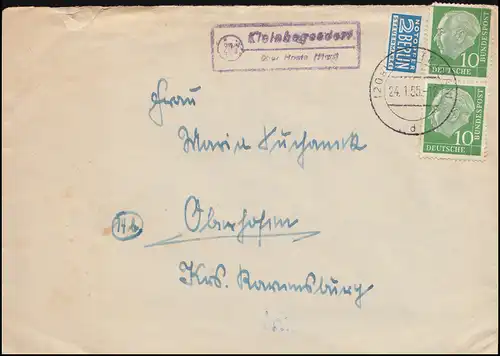 Kleinhegesdorf
über Haste (Han)
NOTOPFER
2 BERLIN
STEUERMARKE
10
DEUTSCHE
BUNDESPOST
24.1.55
d
10
DEUTSCHE
BUNDESPOST
Frau
Maria Suchanek
14b
Oberhofen
Krs. Ravensburg